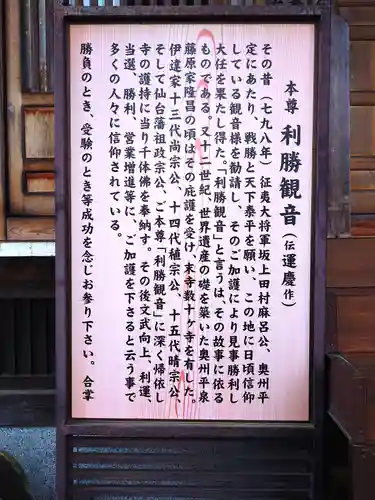 本尊 利勝観音(伝運慶作)
その昔(七九八年)征夷大将軍坂上田村麻呂公、奥州平
定にあたり、戦勝と天下泰平を願い、この地に日頃信仰
している観音様を勧請し、そのご加護により見事勝利し
大任を果たし得た。「利勝観音」と言うは、その故事に依る
ものである。又十二世紀、世界遺産の礎を築いた奥州平泉
藤原家隆昌の頃はその庇護を受け、末寺数十ヶ寺を有した。
伊達家十三代尚宗公、十四代稙宗公、十五代晴宗公、
そして仙台藩祖政宗公、ご本尊「利勝観音」に深く帰依し
寺の護持に当り千体佛を奉納す。その後文武向上、利運、
当選、勝利、営業増進等に、ご加護を下さると云う事で
多くの人々に信仰されている。
勝負のとき、受験のとき等成功を念じお参り下さい。合掌